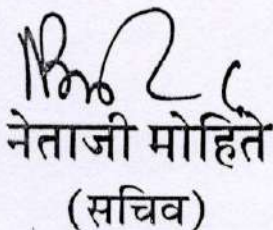 नेताजी मोहिते
(सचिव)